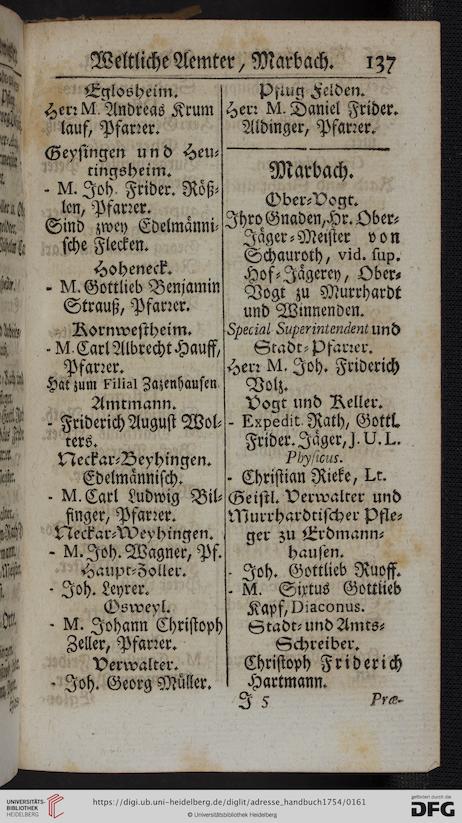 Weltliche Aemter, Marbach. 137
Eglosheim.
Herr M. Andreas Krum
lauf, Pfarrer.
Geysingen und Heu-
tingsheim.
- M. Joh. Frider. Röß-
len, Pfarrer.
Sind zwey Edelmänni-
sche Flecken.
Hoheneck.
- M. Gottlieb Benjamin
Strauß, Pfarrer.
Kornwestheim.
- M. Carl Albrecht Hauff,
Pfarrer.
Hat zum Filial Zazenhausen
Amtmann.
- Friderich August Wol-
ters.
Neckar-Beyhingen.
Edelmännisch.
- M. Carl Ludwig Bil-
finger, Pfarrer.
Neckar-Weyhingen.
- M. Joh. Wagner, Pf.
Haupt-Zoller.
- Joh. Leyrer.
Osweyl.
- M. Johann Christoph
Zeller, Pfarrer.
Verwalter.
- Joh. Georg Müller.
Pflug Felden.
Herr M. Daniel Frider.
Aldinger, Pfarrer.
Marbach.
Ober-Vogt.
Ihro Gnaden, Hr. Ober-
Jäger-Meister von
Schauroth, vid. sup.
Hof-Jägerey, Ober-
Vogt zu Murrhardt
und Winnenden.
Special Superintendent und
Stadt-Pfarrer.
Herr M. Joh. Friderich
Volz.
Vogt und Keller.
- Expedit. Rath, Gottl.
Frider. Jäger, J. U. L.
Physicus.
- Christian Rieke, Lt.
Geistl. Verwalter und
Murrhardtischer Pfle-
ger zu Erdmann-
hausen.
- Joh. Gottlieb Ruoff.
- M. Sixtus Gottlieb
Kapf, Diaconus.
Stadt- und Amts-
Schreiber.
Christoph Friderich
Hartmann.
J 5 Præ-
UNIVERSITÄTS-
BIBLIOTHEK
HEIDELBERG
https://digi.ub.uni-heidelberg.de/diglit/adresse_handbuch1754/0161
© Universitätsbibliothek Heidelberg
gefördert durch die
DFG